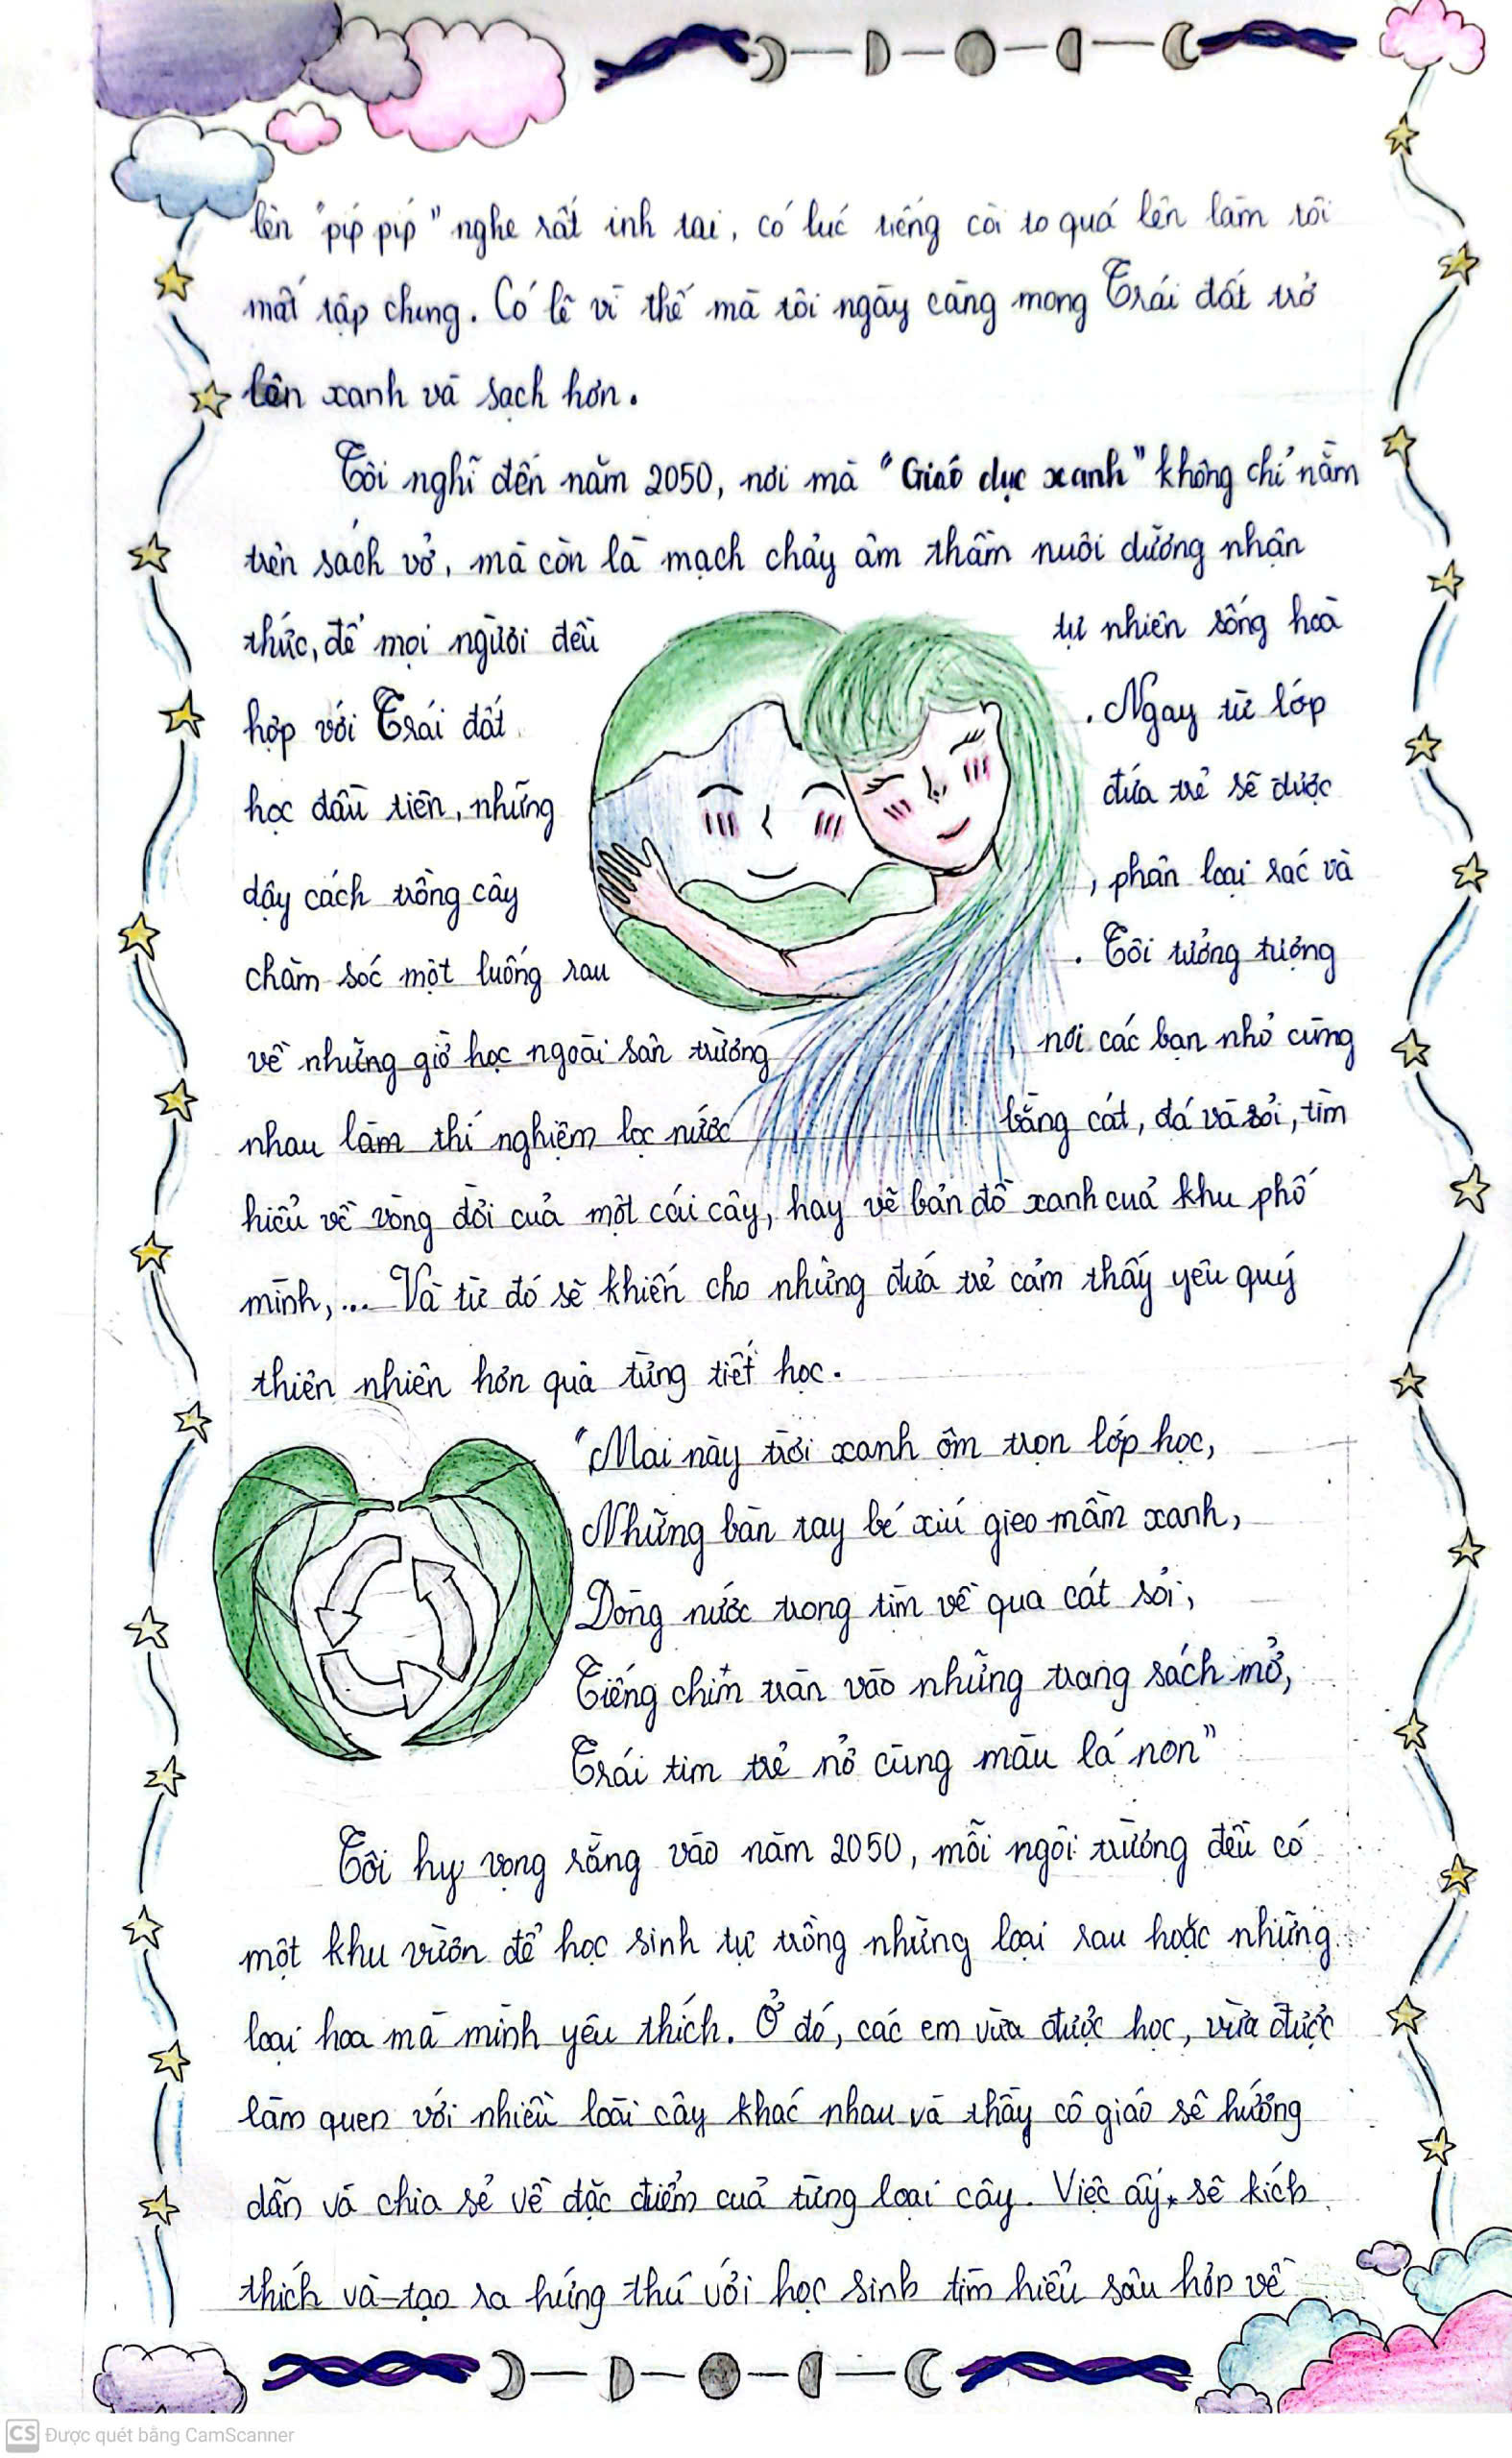 lên "píp píp" nghe rất inh tai, có lúc tiếng còi to quá lên làm tôi
mất tập chung. Có lẽ vì thế mà tôi ngày càng mong Trái đất trở
lên xanh và sạch hơn.
Tôi nghĩ đến năm 2050, nơi mà "Giáo dục xanh" không chỉ nằm
trên sách vở, mà còn là mạch chảy âm thầm nuôi dưỡng nhận
thức, để mọi người đều tự nhiên sống hoà
hợp với Trái đất. Ngay từ lớp
học đầu tiên, những đứa trẻ sẽ được
dậy cách trồng cây, phân loại rác và
chăm sóc một luống rau. Tôi tưởng tượng
về những giờ học ngoài sân trường, nơi các bạn nhỏ cùng
nhau làm thí nghiệm lọc nước bằng cát, đá và sỏi, tìm
hiểu về vòng đời của một cái cây, hay vẽ bản đồ xanh của khu phố
mình,... Và từ đó sẽ khiến cho những đứa trẻ cảm thấy yêu quý
thiên nhiên hơn qua từng tiết học.
"Mai này trời xanh ôm trọn lớp học,
Những bàn tay bé xíu gieo mầm xanh,
Dòng nước trong tìm về qua cát sỏi,
Tiếng chim tràn vào những trang sách mở,
Trái tim trẻ nở cùng màu lá non"
Tôi hy vọng rằng vào năm 2050, mỗi ngôi trường đều có
một khu vườn để học sinh tự trồng những loại rau hoặc những
loại hoa mà mình yêu thích. Ở đó, các em vừa được học, vừa được
làm quen với nhiều loài cây khác nhau và thầy cô giáo sẽ hướng
dẫn và chia sẻ về đặc điểm của từng loại cây. Việc ấy sẽ kích
thích và tạo ra hứng thú với học sinh tìm hiểu sâu hơn về
CS Được quét bằng CamScanner